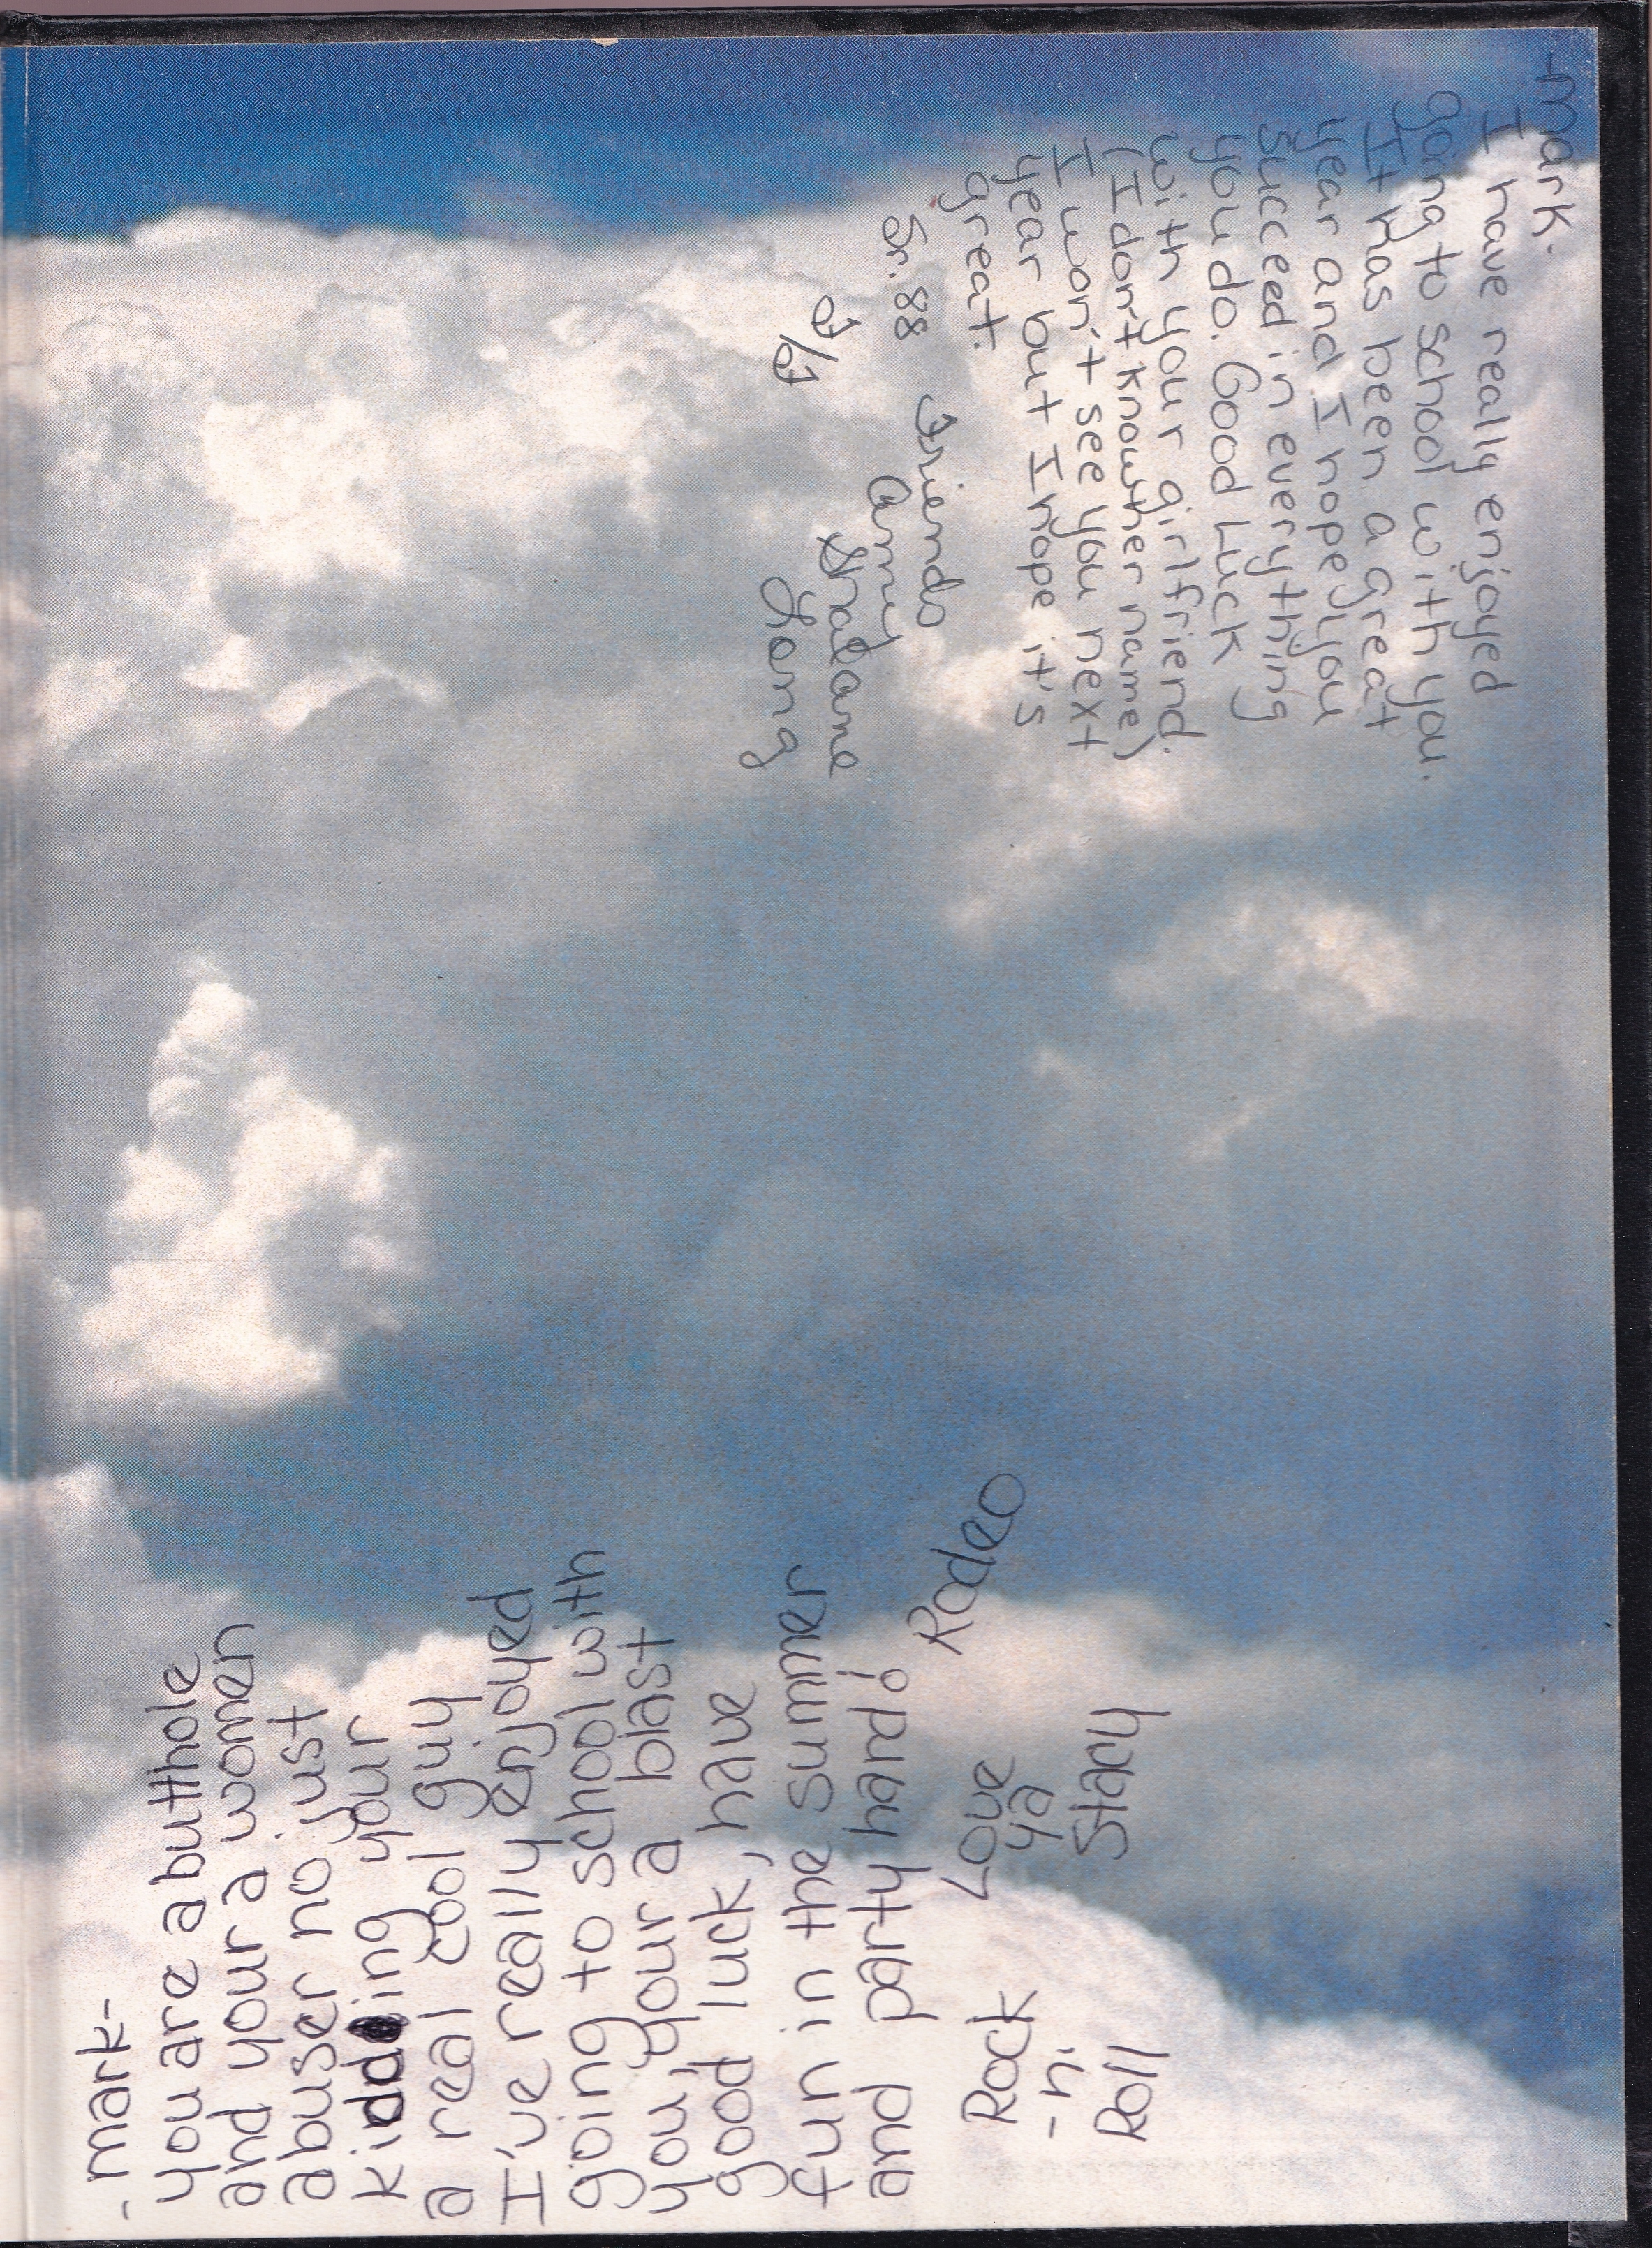 -Mark.
I have really enjoyed
going to school with you.
It has been a great
year and I hope you
succeed in everything
you do. Good Luck
with your girlfriend.
(I don't know her name)
I won't see you next
year but I hope it's
great.
Friends
Sr. 88
Amy
Long
-mark-
you are a butthole
and your a women
abuser no just
kidding your
a real cool guy
I've really enjoyed
going to school with
you, your a blast
good luck, have
fun in the summer
and party hard!
Rodeo
Love
ya
Stacy
Rock
-n-
Roll